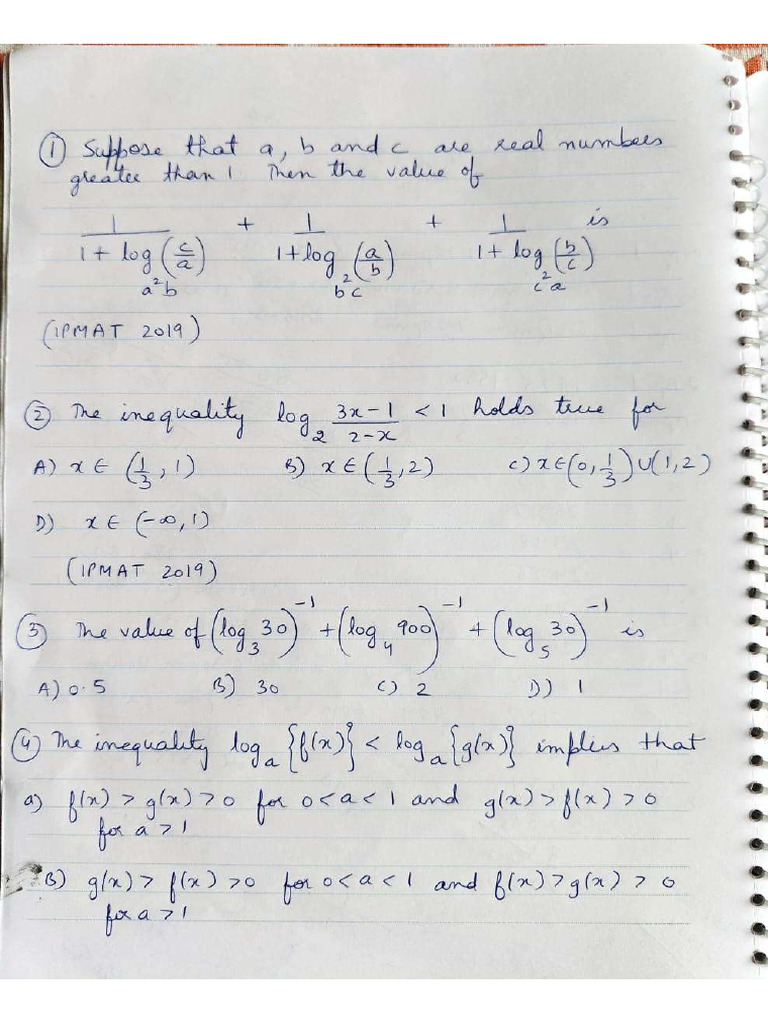 ① Suppose that a, b and c are real numbers
greater than 1. Then the value of
1/(1 + log_{a²b}(c/a)) + 1/(1 + log_{b²c}(a/b)) + 1/(1 + log_{c²a}(b/c)) is
(IPMAT 2019)
② The inequality log₂ (3x-1)/(2-x) < 1 holds true for
A) x ∈ (1/3, 1) B) x ∈ (1/3, 2) C) x ∈ (0, 1/3) ∪ (1, 2)
D) x ∈ (-∞, 1)
(IPMAT 2019)
③ The value of (log₃ 30)⁻¹ + (log₄ 900)⁻¹ + (log₅ 30)⁻¹ is
A) 0.5 B) 30 C) 2 D) 1
④ The inequality logₐ {f(x)} < logₐ {g(x)} implies that
a) f(x) > g(x) > 0 for 0 < a < 1 and g(x) > f(x) > 0
for a > 1
B) g(x) > f(x) > 0 for 0 < a < 1 and f(x) > g(x) > 0
for a > 1